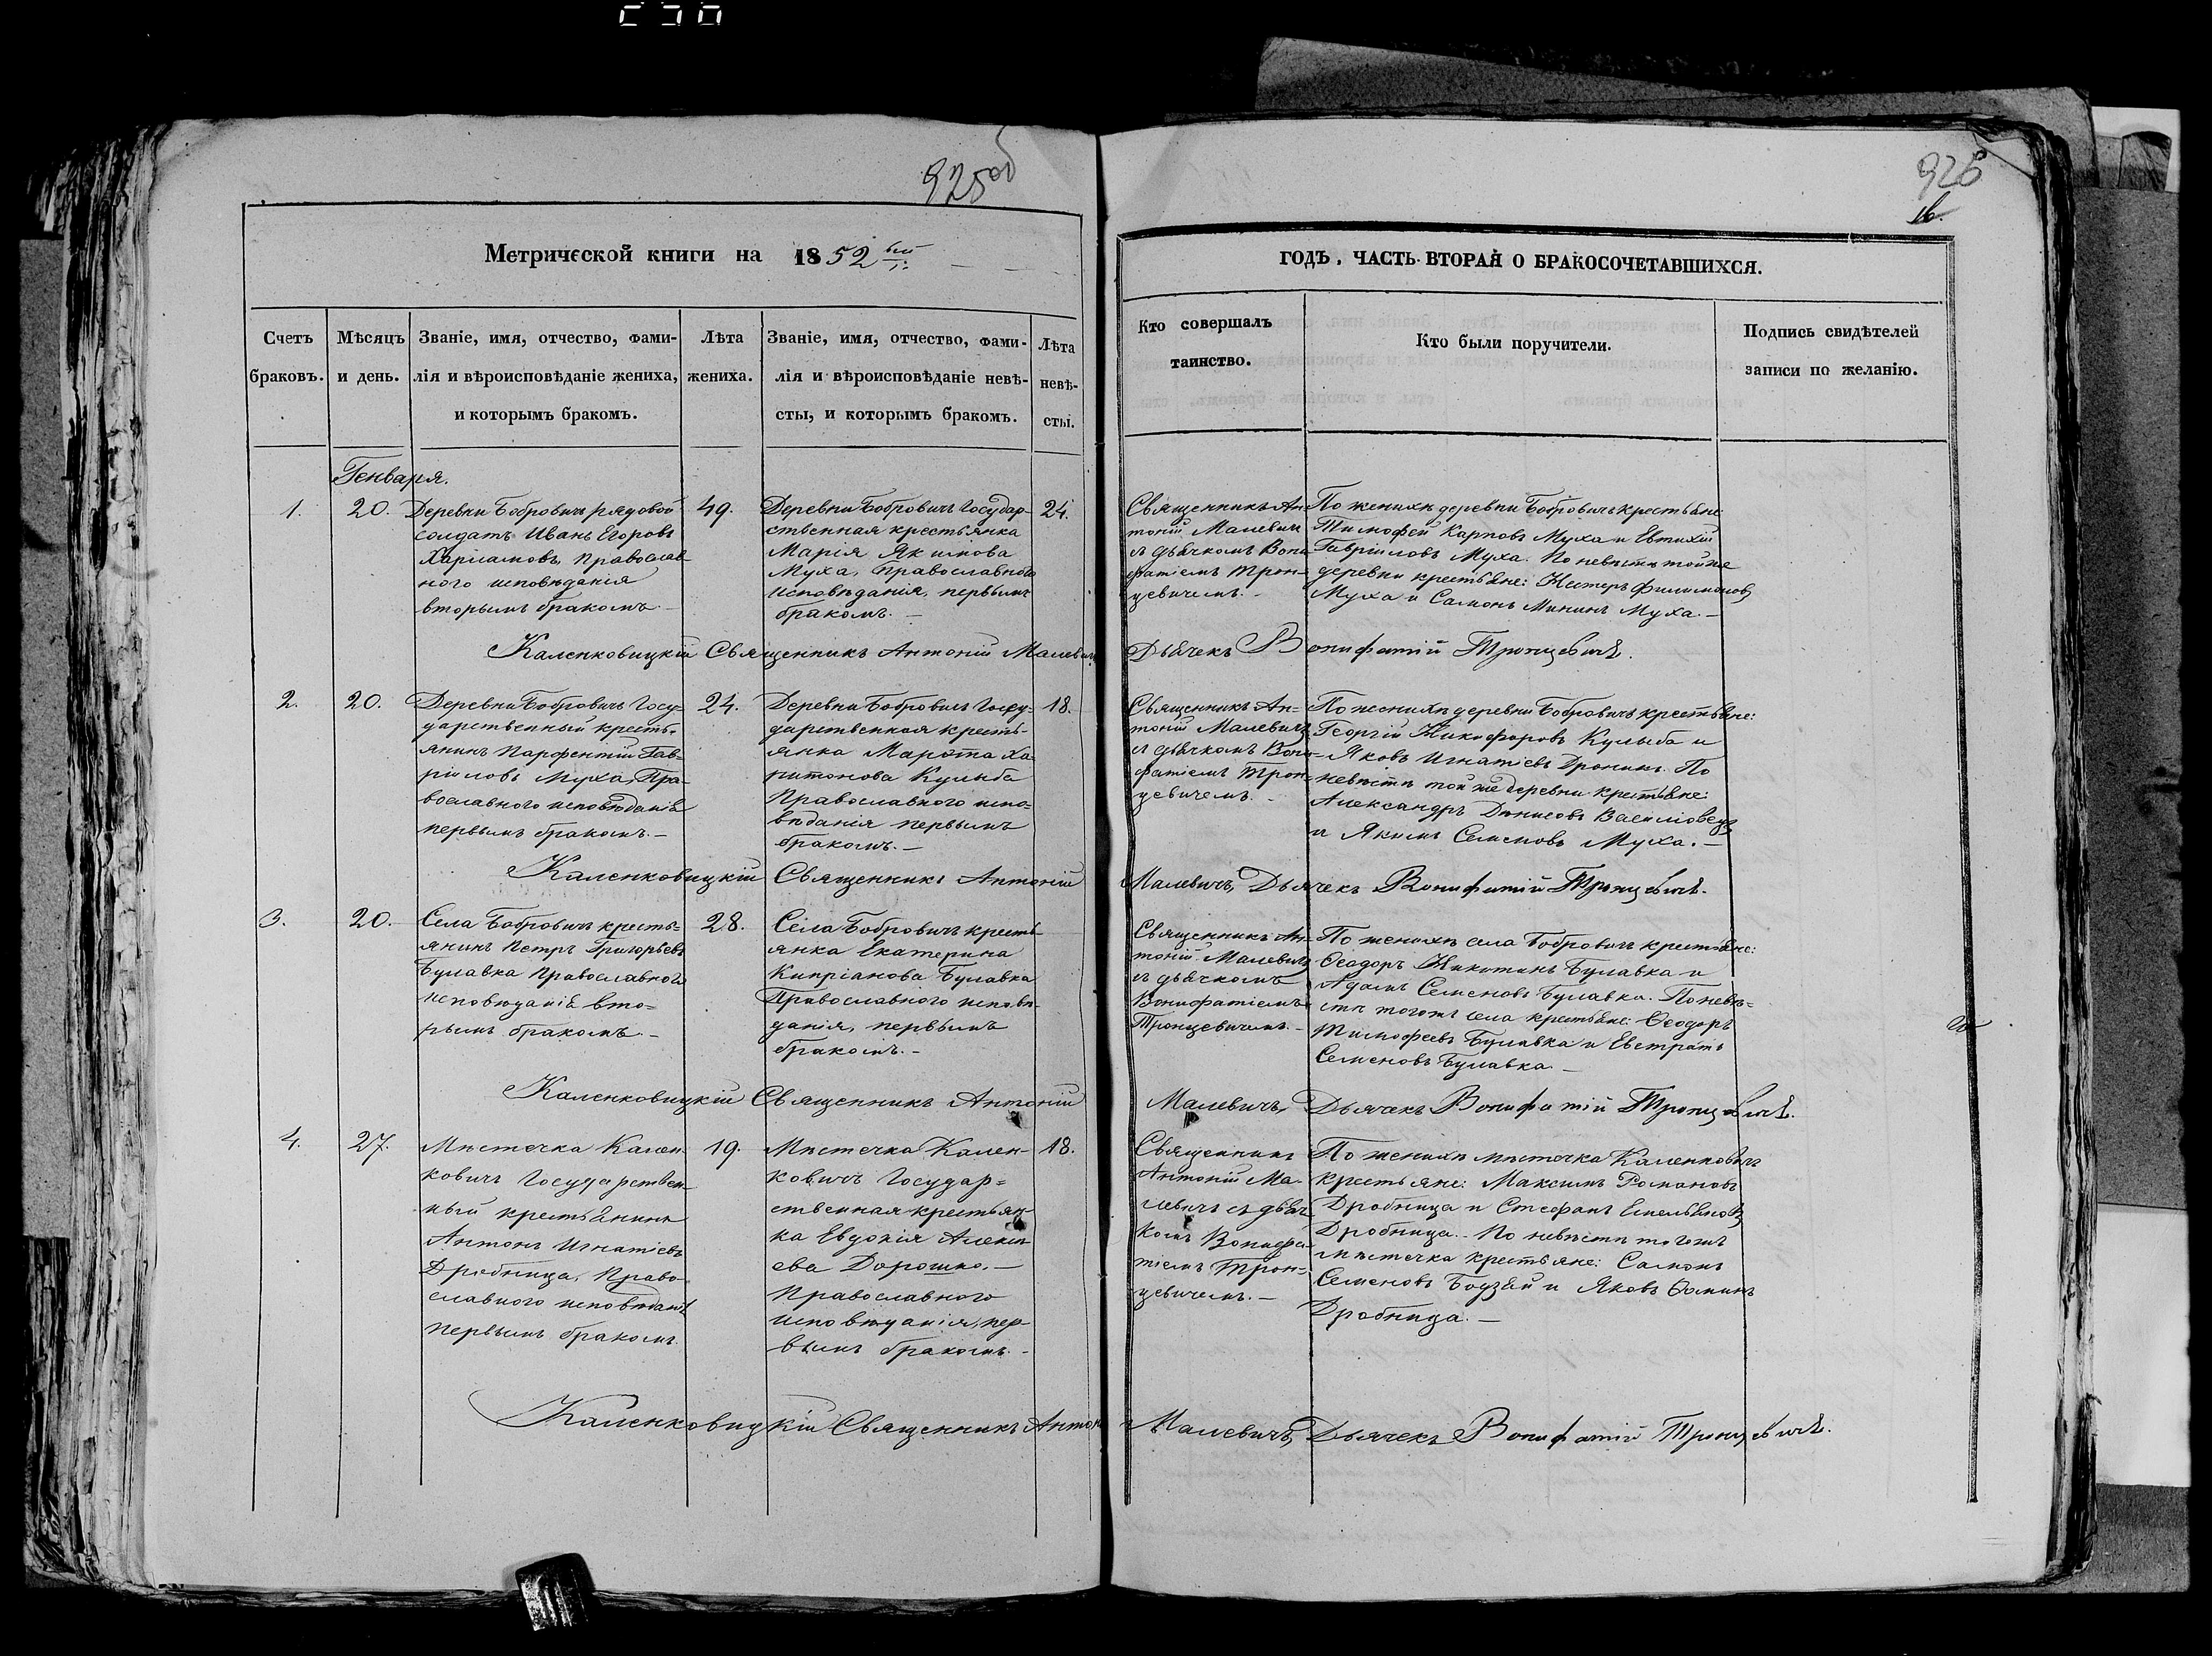 925 об
Метрической книги на 1852 ый
Счетъ браковъ.
Мѣсяцъ и день.
Званіе, имя, отчество, фами-
лія и вѣроисповѣданіе жениха,
и которымъ бракомъ.
Лѣта
жениха.
Званіе, имя, отчество, фами-
лія и вѣроисповѣданіе невѣ-
сты, и которымъ бракомъ.
Лѣта
невѣ-
сты.
926
ГОДЪ, ЧАСТЬ ВТОРАЯ О БРАКОСОЧЕТАВШИХСЯ.
Кто совершалъ
таинство.
Кто были поручители.
Подпись свидѣтелей
записи по желанію.
Генваря.
1.
20.
Деревни Бобровичъ рядовой
солдатъ Иванъ Егоровъ
Харламовъ, Православ
ного исповѣданія
вторымъ бракомъ.-
49.
Деревни Бобровичъ Государ-
ственная крестьянка
Марія Якимова
Муха, Православного
исповѣданія, первымъ
бракомъ.-
24.
Священникъ Ан-
тоній Малевич
съ дьячкомъ Вони
фатіемъ Трон-
цевичемъ.-
По женихѣ деревни Бобровичъ крестьяне
Тимофей Карповъ Муха и Евтихій
Гавріиловъ Муха. По невѣстѣ той же
деревни крестьяне: Нестеръ Филимоновъ
Муха и Самонъ Мининъ Муха.-
Каленковицкій Священникъ Антоній Малевичъ
Дьячекъ Вонифатій Тронцевичъ.
2.
20.
Деревни Бобровичъ Госу-
дарственный кресть-
янинъ Парфентій Гав-
ріиловъ Муха, Пра-
вославного исповѣданія
первымъ бракомъ.-
24.
Деревни Бобровичъ Госу-
дарственная кресть-
янка Марѳта Ха-
ритонова Кульба
Православного испо-
вѣданія первымъ
бракомъ.-
18.
Священникъ Ан-
тоній Малевичъ
съ дьячкомъ Вони-
фатіемъ Трон-
цевичемъ.-
По женихѣ деревни Бобровичъ крестьяне:
Георгій Никифоровъ Кульба и
Яковъ Игнатіевъ Дронинъ. По
невѣстѣ той же деревни крестьяне:
Александръ Денисовъ Василовецъ
и Якимъ Семеновъ Муха.-
Каленковицкій Священникъ Антоній
Малевичъ, Дьячекъ Вонифатій Тронцевичъ.
3.
20.
Села Бобровичъ кресть-
янинъ Петръ Григорьевъ
Булавка Православного
исповѣданія вто-
рымъ бракомъ.-
28.
Села Бобровичъ кресть
янка Екатерина
Кипріанова Булавка
Православного исповѣ-
данія, первымъ
бракомъ.-
Священникъ Ан-
тоній Малевичъ
съ дьячкомъ
Вонифатіемъ
Тронцевичемъ.-
По женихѣ села Бобровичъ крестьяне:
Ѳеодоръ Никитинъ Булавка и
Адамъ Семеновъ Булавка. По невѣ-
стѣ тогожъ села крестьяне: Ѳеодоръ
Тимофеевъ Булавка и Евстратъ
Семеновъ Булавка.-
Каленковицкій Священникъ Антоній
Малевичъ, Дьячекъ Вонифатій Тронцевичъ.
4.
27.
Мѣстечка Кален-
ковичъ Государствен-
ный крестьянинъ
Антонъ Игнатіевъ
Дробница, Право-
славного исповѣданія
первымъ бракомъ.
19.
Мѣстечка Кален-
ковичъ Государ-
ственная крестьян-
ка Евдокія Алексѣ
ева Дорошко.-
Православного
исповѣданія, пер-
вымъ бракомъ.-
18.
Священникъ
Антоній Ма-
левичъ съ дьяч
комъ Вонифа-
тіемъ Трон-
цевичемъ.-
По женихѣ мѣстечка Каленковичъ
крестьяне: Максимъ Романовъ
Дробница и Стефанъ Емельяновъ
Дробница. По невѣстѣ тогожъ
мѣстечка крестьяне: Самонъ
Семеновъ Бодзей и Яковъ Ѳоминъ
Дробница.-
Каленковицкій Священникъ Антон
Малевичъ, Дьячекъ Вонифатій Тронцевичъ.